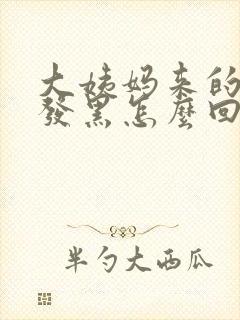 大姨妈来的
發黑怎麼回
半勺大西瓜